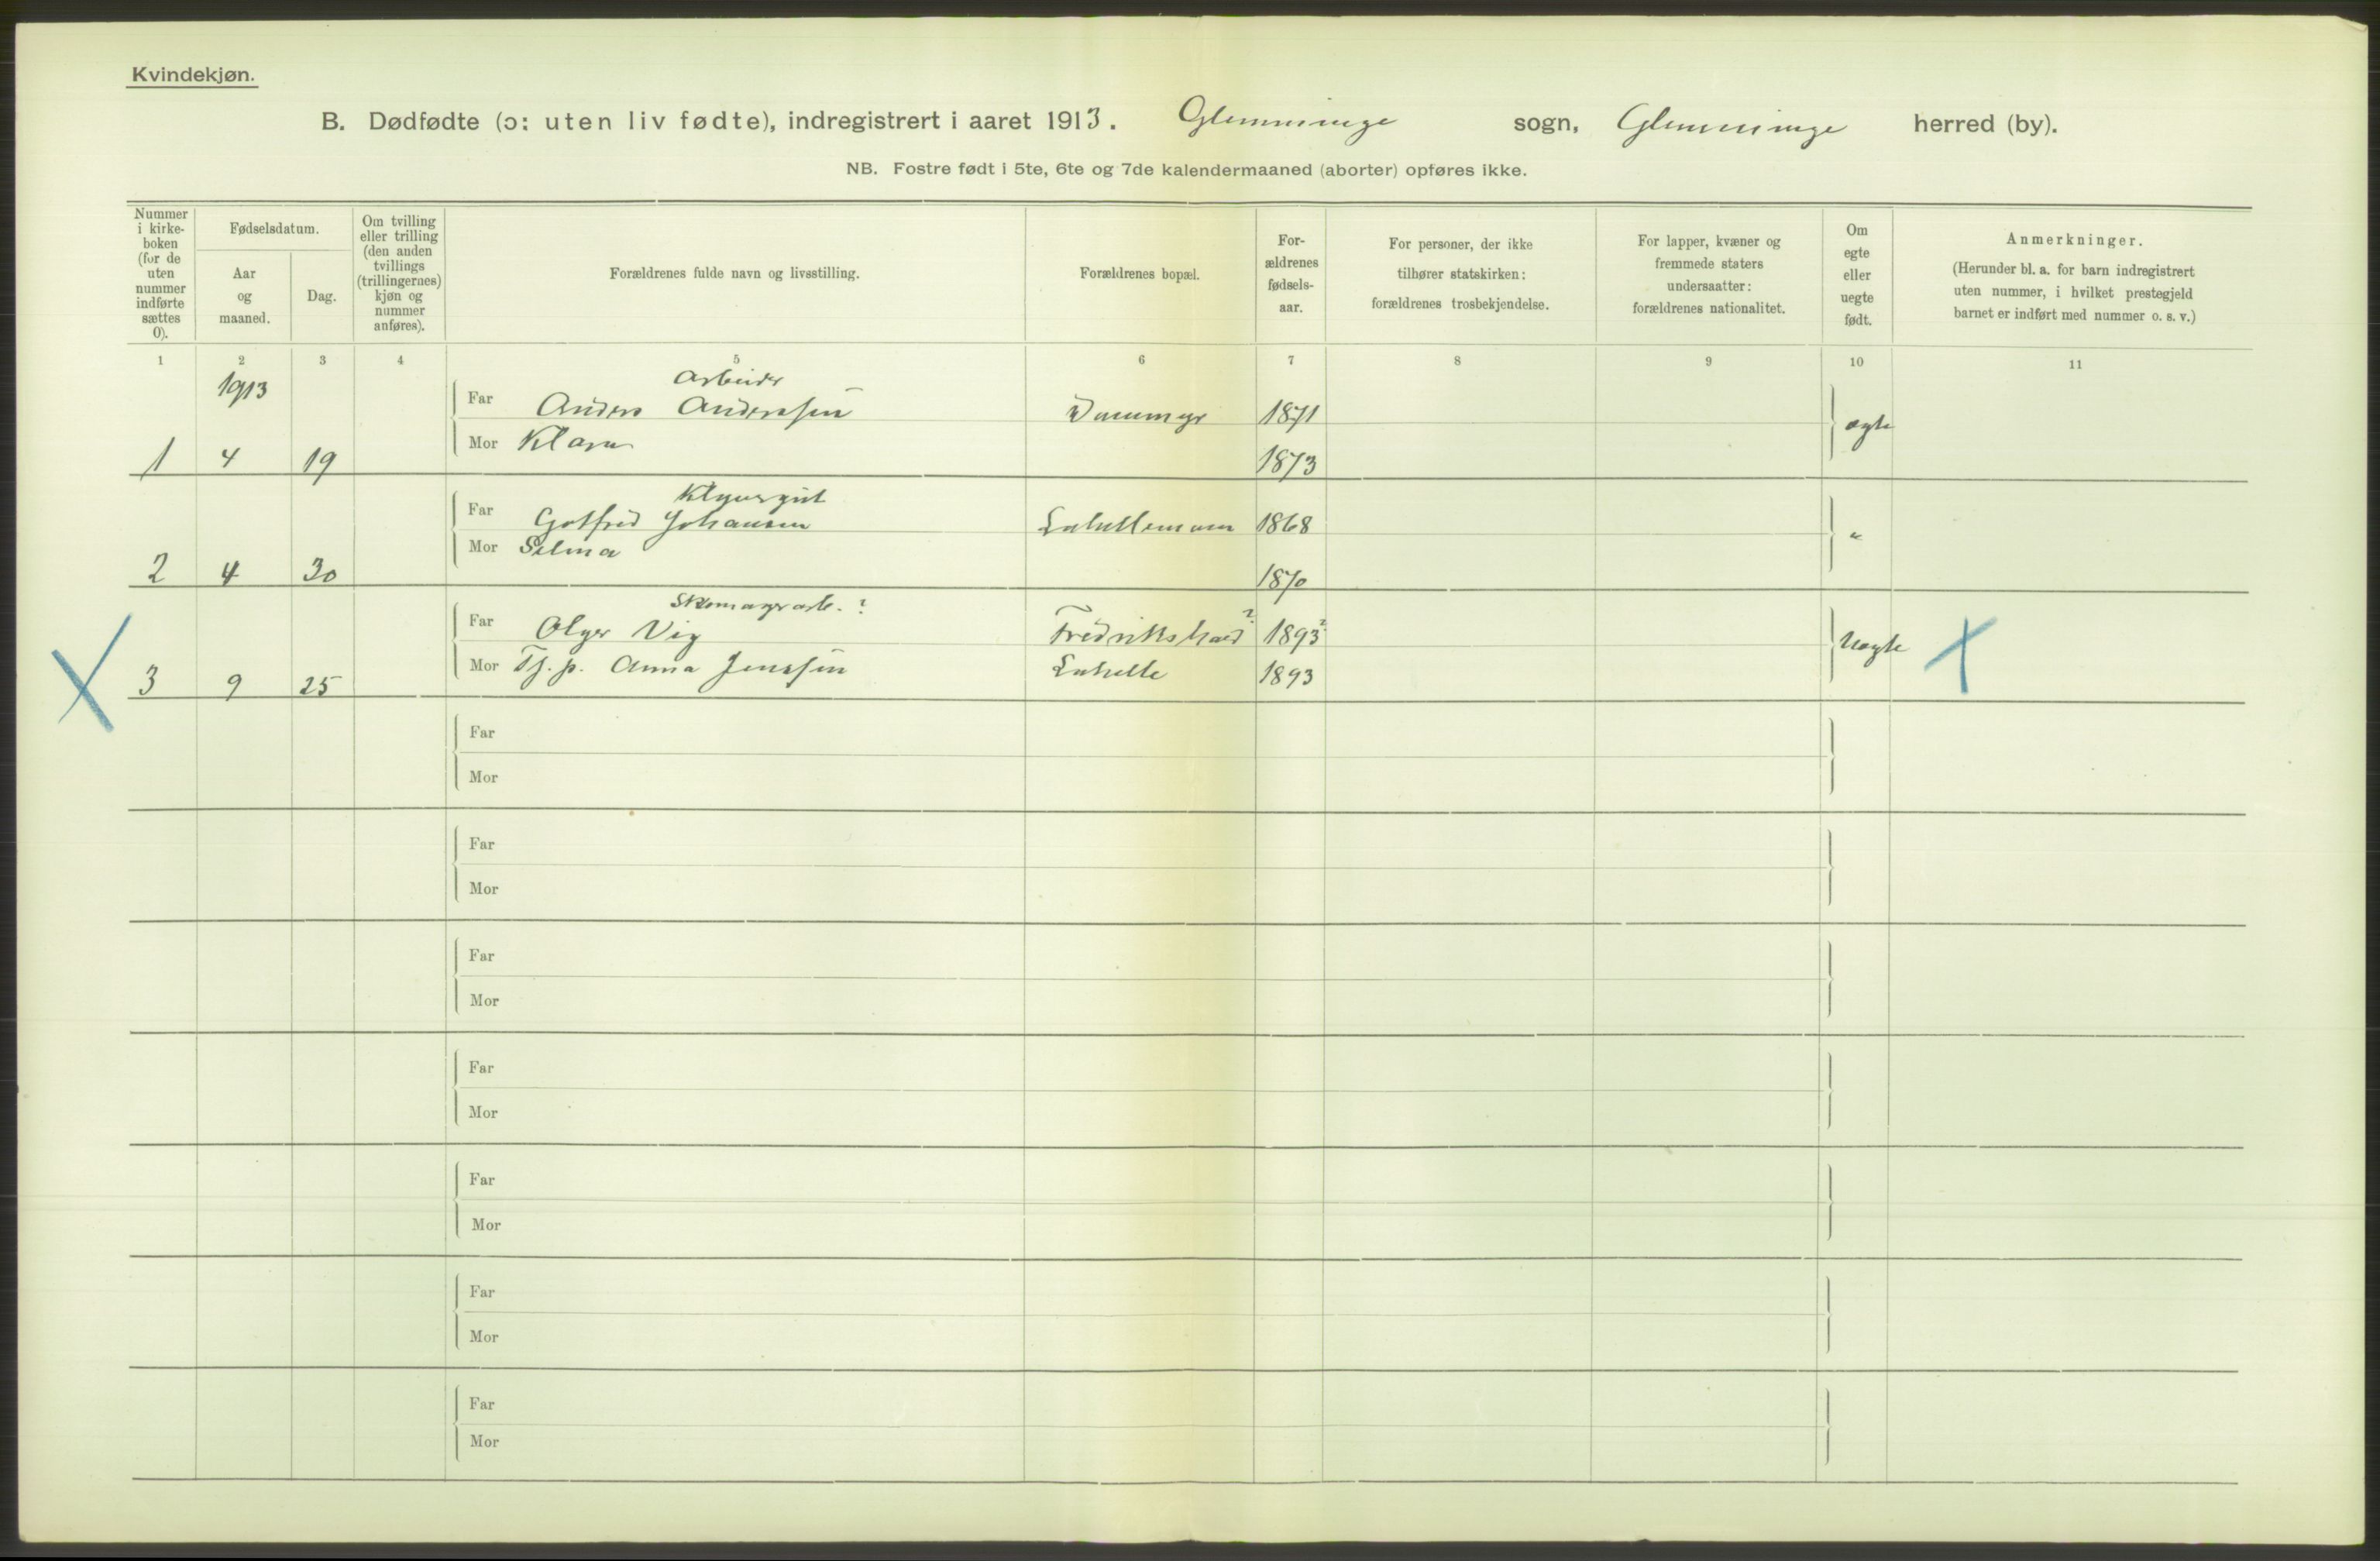 Kvindekjøn.
B. Dødfødte (ɔ: uten liv fødte), indregistrert i aaret 1913. Glemminge sogn, Glemminge herred (by).
NB. Fostre født i 5te, 6te og 7de kalendermaaned (aborter) opføres ikke.
Nummer i kirke-boken (for de uten nummer indførte sættes 0).
Fødselsdatum.
Aar og maaned.
Dag.
Om tvilling eller trilling (den anden tvillings (trillingernes) kjøn og nummer anføres).
Forældrenes fulde navn og livsstilling.
Forældrenes bopæl.
For-ældrenes fødsels-aar.
For personer, der ikke tilhører statskirken: forældrenes trosbekjendelse.
For lapper, kvæner og fremmede staters undersaatter: forældrenes nationalitet.
Om egte eller uegte født.
Anmerkninger.
(Herunder bl. a. for barn indregistrert uten nummer, i hvilket prestegjeld barnet er indført med nummer o. s. v.)
1 2 3 4 5 6 7 8 9 10 11
1913
Arbeider
Far Anders Anderssen 1871
Mor Klara 1873
ægte
1 4 19
Far Gotfred Johansen 1868
Mor Selma 1870
"
2 4 30
Skomagerarb. ?
Far Olger Vig Fredrikshald ? 1893 ?
Mor Tj. p. Anna Jenssen Labelle 1893
Uægte
3 9 25
Far
Mor
Far
Mor
Far
Mor
Far
Mor
Far
Mor
Far
Mor
Far
Mor